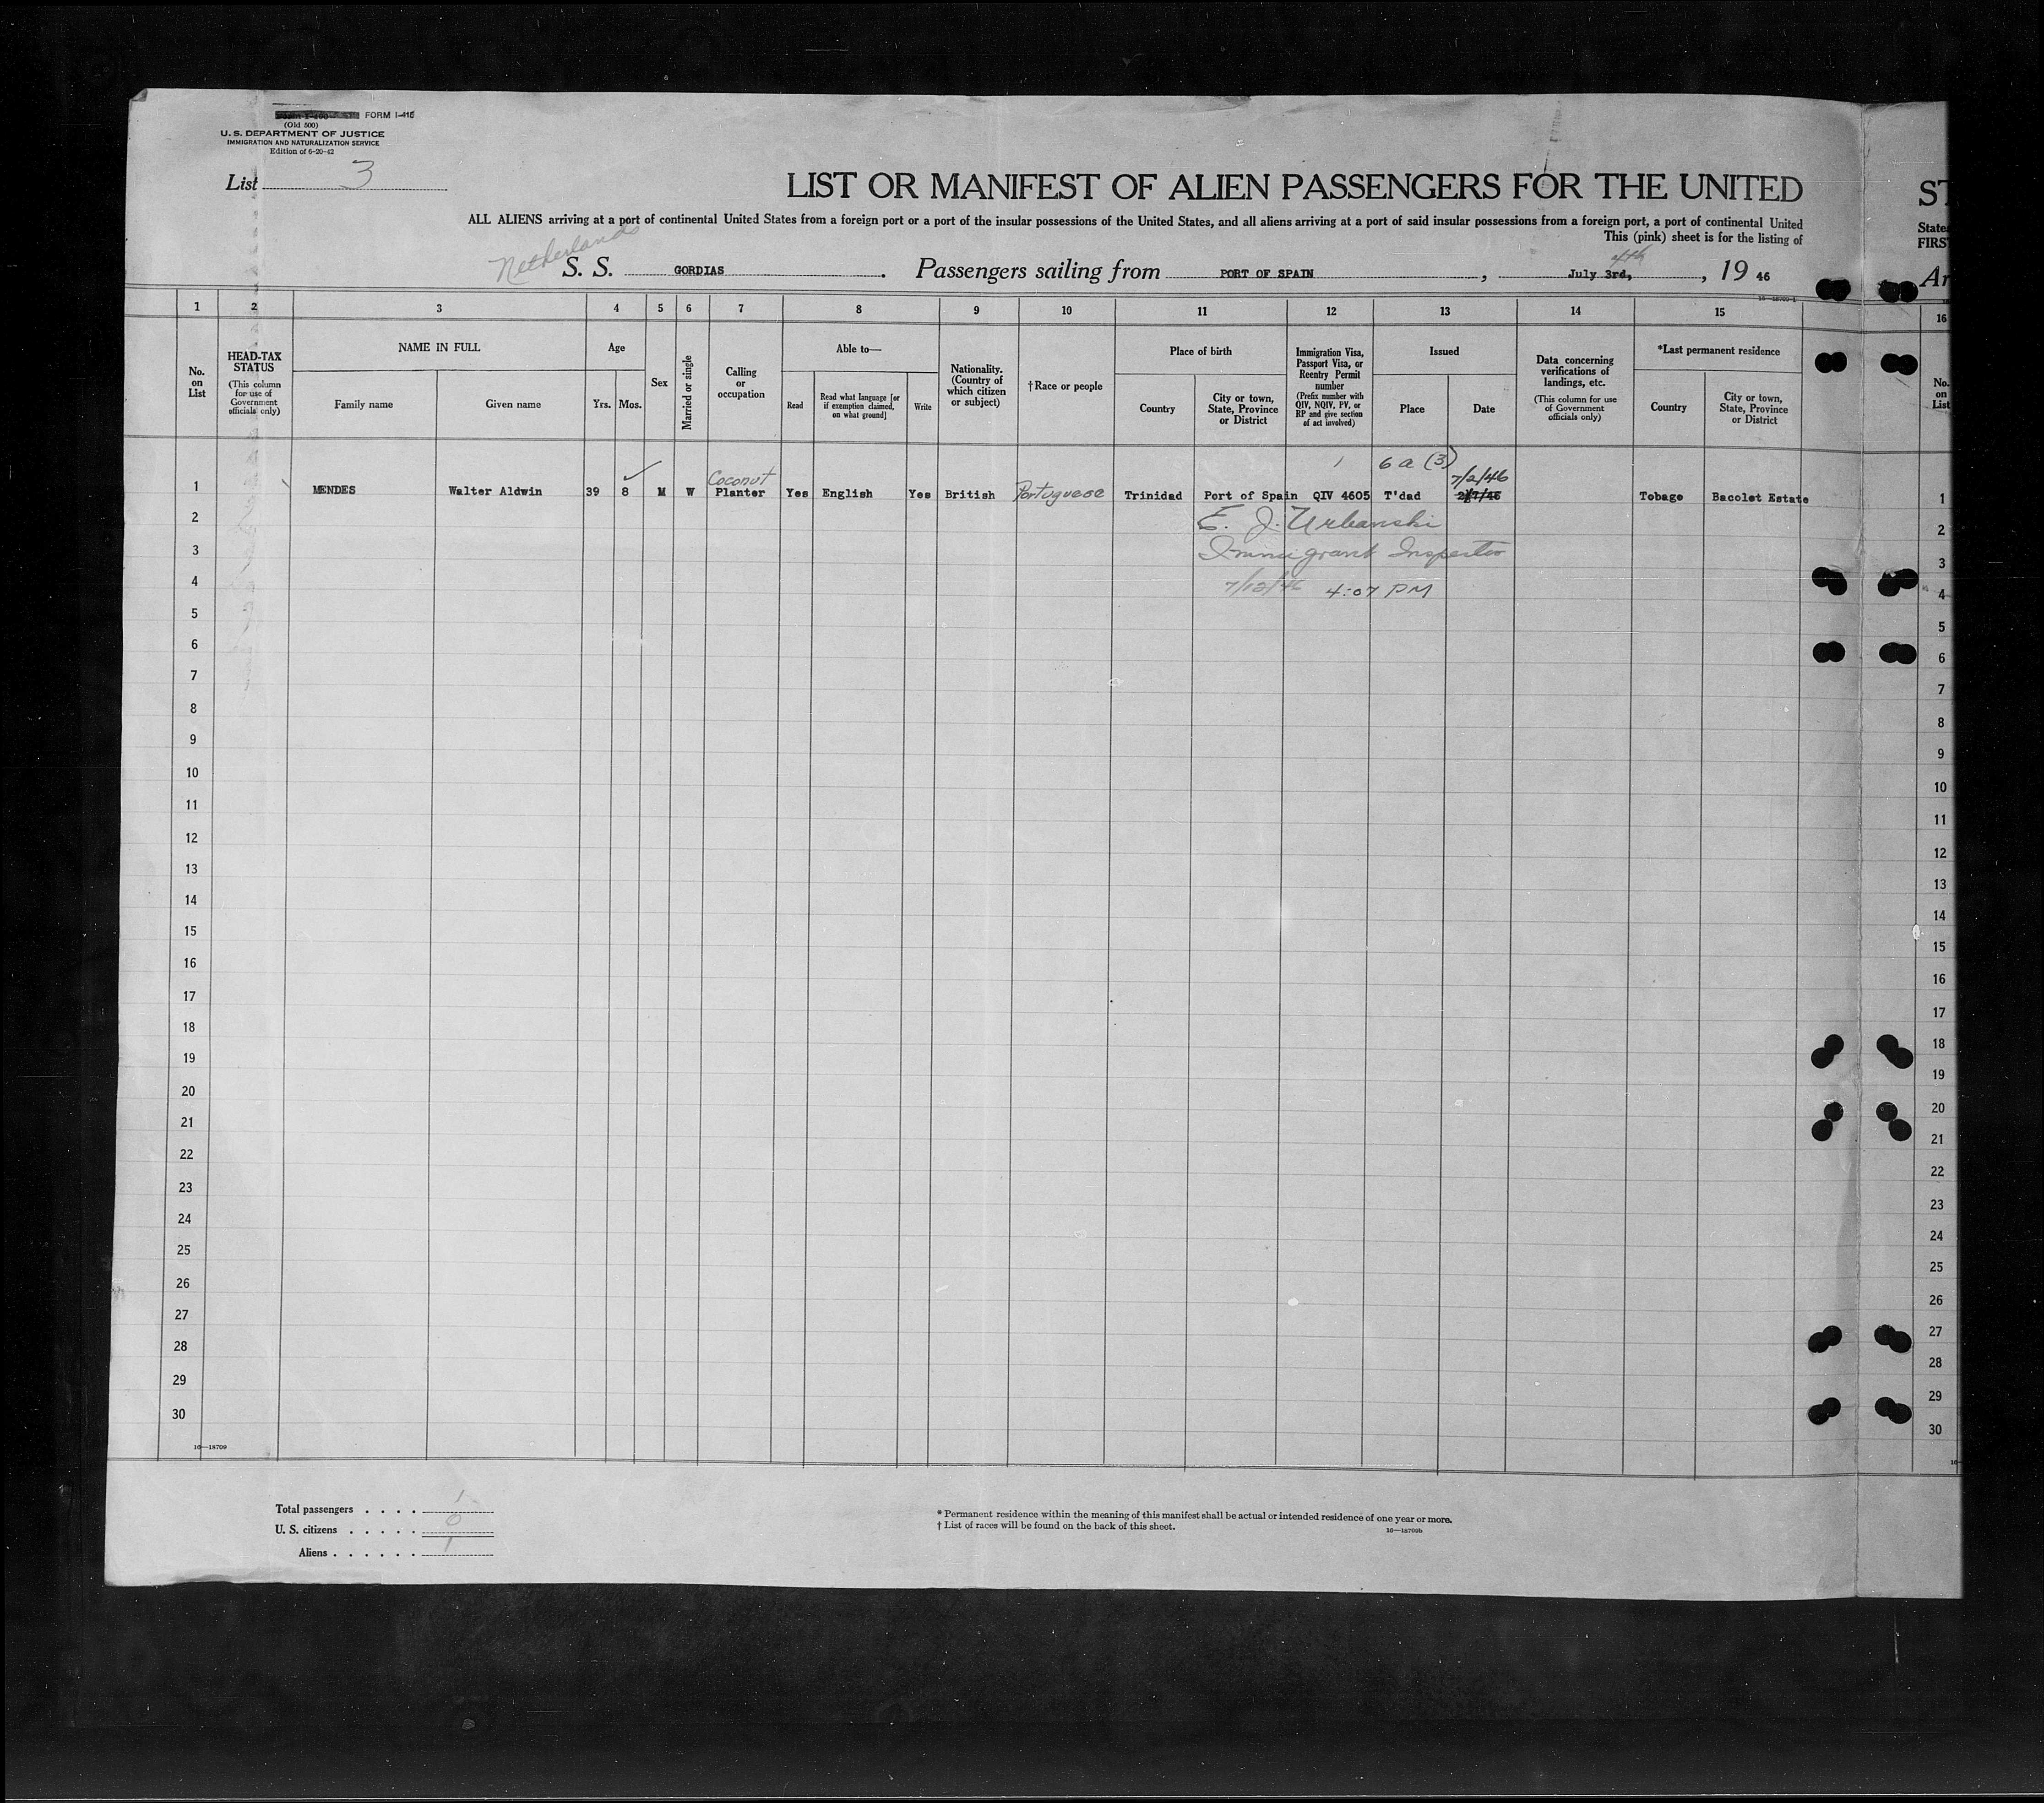 FORM I-415
(Old 500)
U. S. DEPARTMENT OF JUSTICE
IMMIGRATION AND NATURALIZATION SERVICE
Edition of 6-20-42
List 3
LIST OR MANIFEST OF ALIEN PASSENGERS FOR THE UNITED
ST
ALL ALIENS arriving at a port of continental United States from a foreign port or a port of the insular possessions of the United States, and all aliens arriving at a port of said insular possessions from a foreign port, a port of continental United
States
This (pink) sheet is for the listing of
FIRS
Netherlands
4th
S. S. GORDIAS. Passengers sailing from PORT OF SPAIN, July 3rd, , 19 46
Ar
1 2 3 4 5 6 7 8 9 10 11 12 13 14 15 16
No. on List
HEAD-TAX STATUS (This column for use of Government officials only)
NAME IN FULL
Family name
Given name
Age
Yrs.
Mos.
Sex
Married or single
Calling or occupation
Able to—
Read
Read what language [or if exemption claimed, on what ground]
Write
Nationality. (Country of which citizen or subject)
†Race or people
Place of birth
Country
City or town, State, Province or District
Immigration Visa, Passport Visa, or Reentry Permit number (Prefix number with QIV, NQIV, PV, or RP and give section of act involved)
Issued
Place
Date
Data concerning verifications of landings, etc. (This column for use of Government officials only)
*Last permanent residence
Country
City or town, State, Province or District
No. on List
1 6 a (3)
Coconut 7/2/46
1 MENDES Walter Aldwin 39 8 M W Planter Yes English Yes British Portuguese Trinidad Port of Spain QIV 4605 T'dad 2/7/46 Tobago Bacolet Estate 1
2 E. J. Urbanski 2
3 Immigrant Inspector 3
4 7/12/46 4:07 PM 4
5 5
6 6
7 7
8 8
9 9
10 10
11 11
12 12
13 13
14 14
15 15
16 16
17 17
18 18
19 19
20 20
21 21
22 22
23 23
24 24
25 25
26 26
27 27
28 28
29 29
30 30
16—18709
Total passengers . . . . 1
U. S. citizens . . . . . 0
Aliens . . . . . . 1
* Permanent residence within the meaning of this manifest shall be actual or intended residence of one year or more.
† List of races will be found on the back of this sheet.
16—18709b